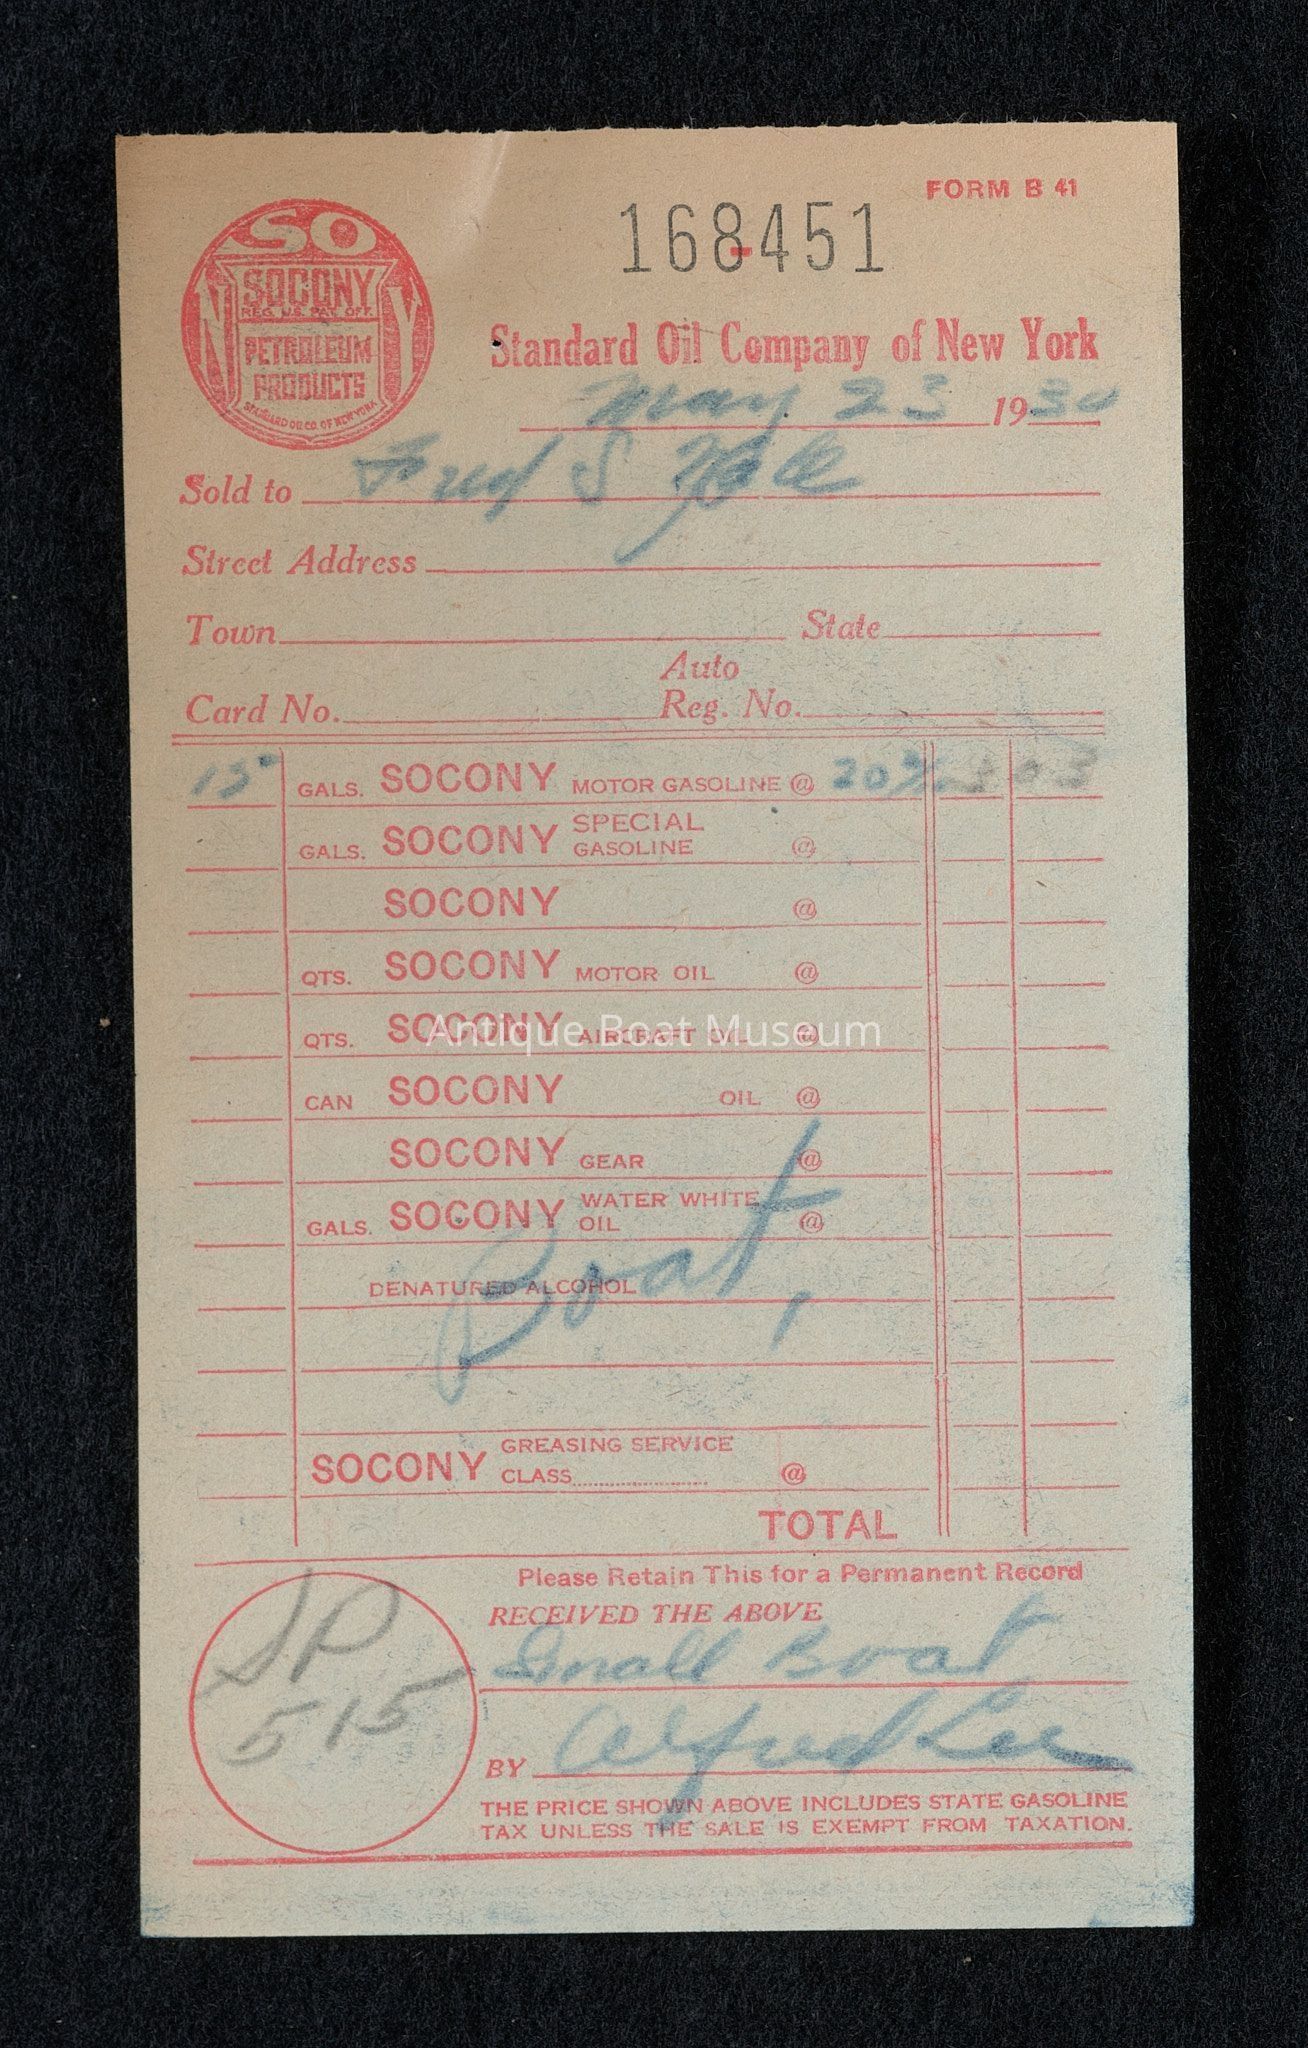 FORM B 41
168451
SO
SOCONY
REG. U.S. PAT. OFF.
PETROLEUM
PRODUCTS
STANDARD OIL CO. OF NEW YORK
N Y
Standard Oil Company of New York
May 23 1930
Sold to Fred S Hall
Street Address
Town State
Auto
Card No. Reg. No.
15 GALS. SOCONY MOTOR GASOLINE @ 20 3 03
GALS. SOCONY SPECIAL GASOLINE @
SOCONY @
QTS. SOCONY MOTOR OIL @
QTS. SOCONY AIRCRAFT OIL @
Antique Boat Museum
CAN SOCONY OIL @
SOCONY GEAR @
GALS. SOCONY WATER WHITE OIL @
Boat,
DENATURED ALCOHOL
SOCONY GREASING SERVICE CLASS @
TOTAL
Please Retain This for a Permanent Record
RECEIVED THE ABOVE
Small Boat
SP
515
BY Alfred Lee
THE PRICE SHOWN ABOVE INCLUDES STATE GASOLINE
TAX UNLESS THE SALE IS EXEMPT FROM TAXATION.